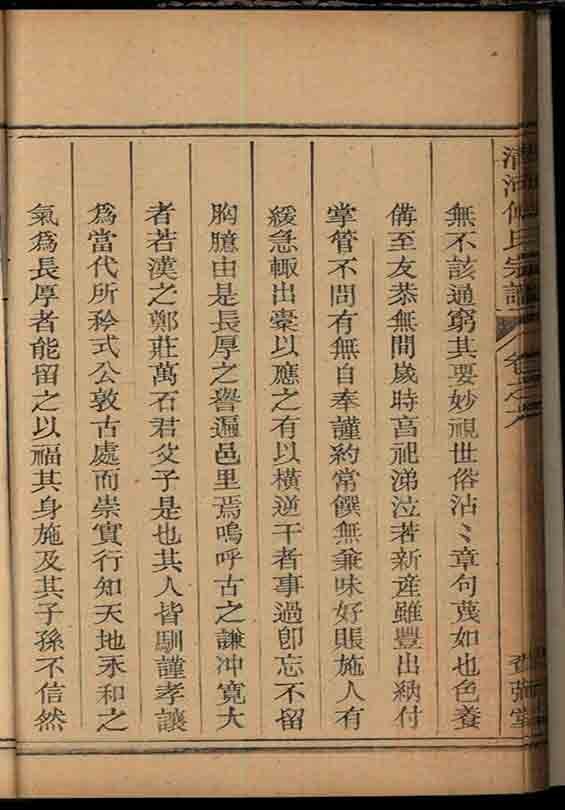 清河傅氏宗譜 卷之
無不該通窮其要妙視世俗沾〻章句蔑如也色養
備至友恭無間歲時享祀涕泣若新產雖豐出納付
掌管不問有無自奉謹約常饌無兼味好賬施人有
緩急輙出橐以應之有以橫逆干者事過卽忘不留
胸臆由是長厚之譽遍邑里焉嗚呼古之謙冲寬大
者若漢之鄭莊萬石君父子是也其人皆馴謹孝讓
爲當代所矜式公敦古處而崇實行知天地禾和之
氣爲長厚者能留之以福其身施及其子孫不信然